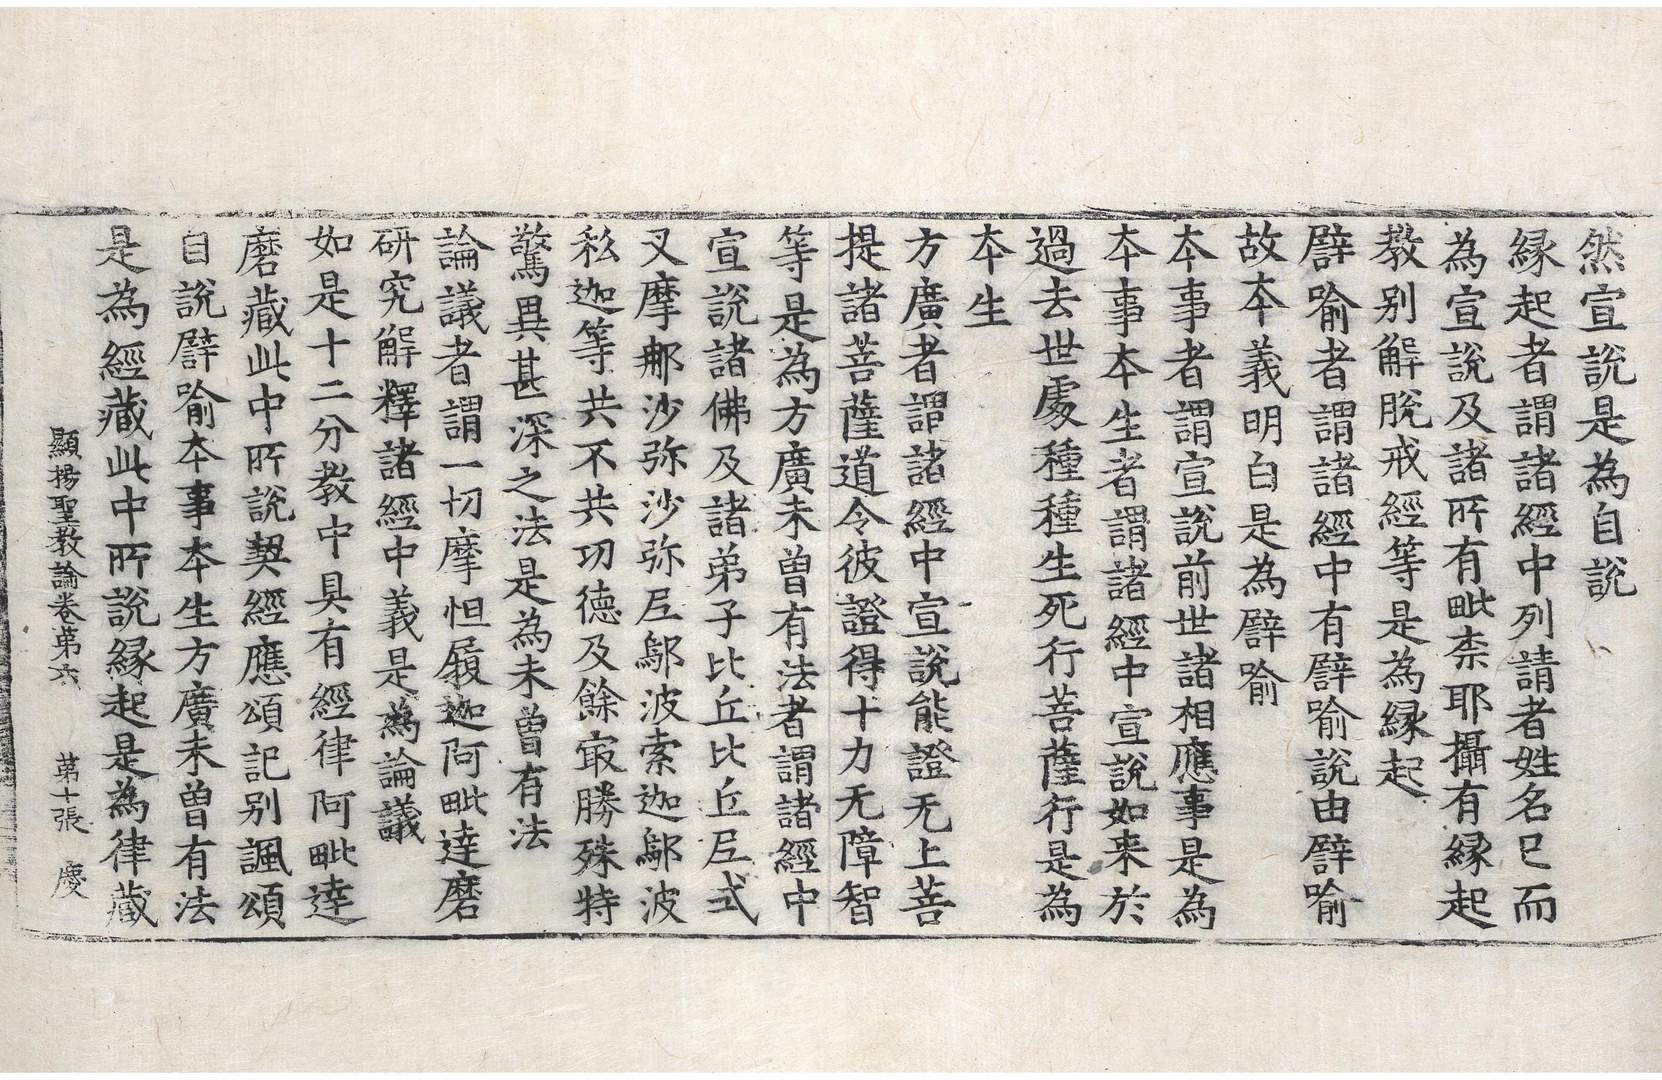 然宣說是為自說
縁起者謂諸經中列請者姓名已而
為宣說及諸所有毗柰耶攝有縁起
教别解脫戒經等是為縁起
譬喻者謂諸經中有譬喻說由譬喻
故本義明白是為譬喻
本事者謂宣說前世諸相應事是為
本事本生者謂諸經中宣說如来於
過去世處種種生死行菩薩行是為
本生
方廣者謂諸經中宣說能證无上菩
提諸菩薩道令彼證得十力无障智
等是為方廣未曾有法者謂諸經中
宣說諸佛及諸弟子比丘比丘尼式
叉摩那沙弥沙弥尼鄔波索迦鄔波
私迦等共不共功德及餘㝡勝殊特
驚異甚深之法是為未曾有法
論議者謂一切摩怛履迦阿毗達磨
研究解釋諸經中義是為論議
如是十二分教中具有經律阿毗達
磨藏此中所說契經應頌記别諷頌
自說譬喻本事本生方廣未曾有法
是為經藏此中所說縁起是為律藏
顯揚聖教論卷第六 第十張 慶